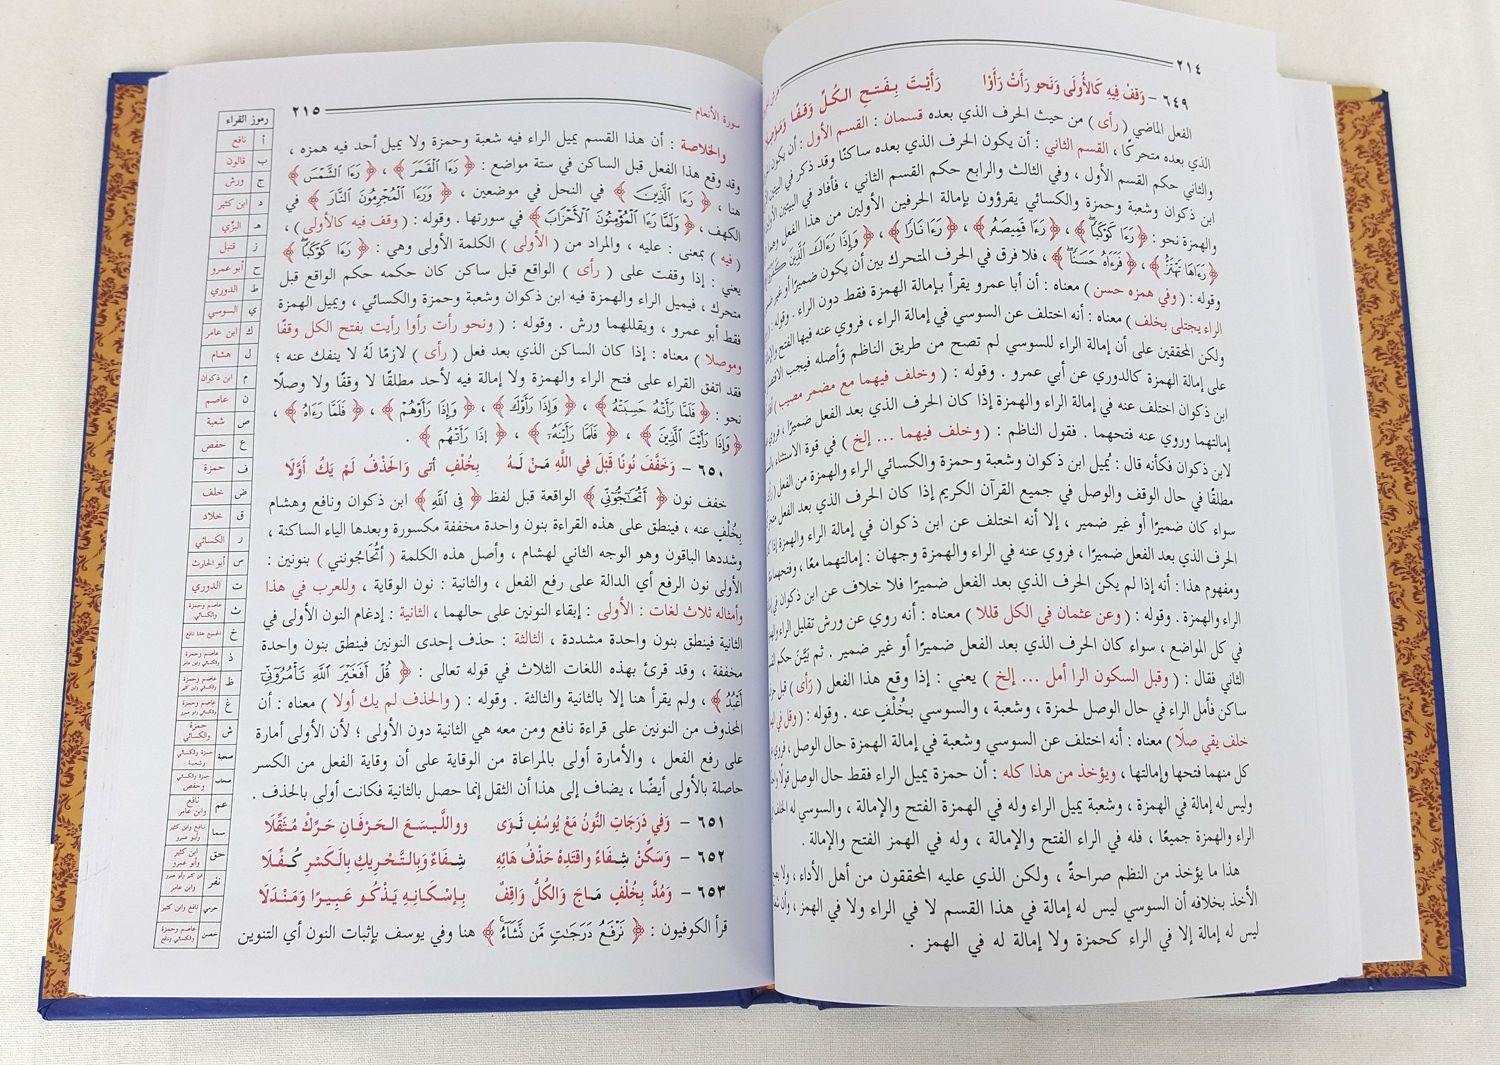 ٢١٤
٦٤٩ – وَقِفْ فِيهِ كَالأُولَى وَنَحْو رَأَتْ رَأَوْا رَأَيْتَ بِفَتحِ الكُلِّ وَقْفًا
الفعل الماضي ( رأى ) من حيث الحرف الذي بعده قسمان : القسم الأول : أن يكون
الذي بعده متحركًا ، القسم الثاني : أن يكون الحرف الذي بعده ساكنًا وقد ذكر في البيتين
والثاني حكم القسم الأول ، وفي الثالث والرابع حكم القسم الثاني ، فأفاد في البيتين
ابن ذكوان وشعبة وحمزة والكسائي يقرؤون بإمالة الحرفين الأولين من هذا الفعل
والهمزة نحو : ﴿ رَءَا كَوْكَبًا ﴾ ، ﴿ رَءَا قَمِيصَهُ ﴾ ، ﴿ رَءَا نَارًا ﴾ ، ﴿ وَإِذَا رَءَاكَ الَّذِينَ
﴿ رَءَاهَا تَهْتَزُّ ﴾ ، ﴿ فَرَءَاهُ حَسَنًا ﴾ ، فلا فرق في الحرف المتحرك بين أن يكون ضميرًا أو غير
وقوله : ( وفي همزه حسن ) معناه : أن أبا عمرو يقرأ بإمالة الهمزة فقط دون الراء . وقوله :
الراء يجتلى بخلف ) معناه : أنه اختلف عن السوسي في إمالة الراء ، فروي عنه فيها الفتح
ولكن المحققين على أن إمالة الراء للسوسي لم تصح من طريق الناظم وأصله فيجب
على إمالة الهمزة كالدوري عن أبي عمرو . وقوله : ( وخلف فيهما مع مضمر مصيب )
ابن ذكوان اختلف عنه في إمالة الراء والهمزة إذا كان الحرف الذي بعد الفعل ضميرًا ،
إمالتهما وروي عنه فتحهما . فقول الناظم : ( وخلف فيهما ... إلخ ) في قوة الاستثناء
لابن ذكوان فكأنه قال : يُميل ابن ذكوان وشعبة وحمزة والكسائي الراء والهمزة من الفعل
مطلقًا في حال الوقف والوصل في جميع القرآن الكريم إذا كان الحرف الذي بعد الفعل
سواء كان ضميرًا أو غير ضمير ، إلا أنه اختلف عن ابن ذكوان في إمالة الراء والهمزة
الحرف الذي بعد الفعل ضميرًا ، فروي عنه في الراء والهمزة وجهان : إمالتهما معًا ، وفتحهما
ومفهوم هذا : أنه إذا لم يكن الحرف الذي بعد الفعل ضميرًا فلا خلاف عن ابن ذكوان في
الراء والهمزة . وقوله : ( وعن عثمان في الكل قللا ) معناه : أنه روي عن ورش تقليل الراء
في كل المواضع ، سواء كان الحرف الذي بعد الفعل ضميرًا أو غير ضمير . ثم بَيَّنَ حكم
الثاني فقال : ( وقبل السكون الرا أمل ... إلخ ) يعني : إذا وقع هذا الفعل ( رأى ) قبل
ساكن فأمل الراء في حال الوصل لحمزة ، وشعبة ، والسوسي بخُلْفٍ عنه . وقوله : ( وقل في
خلف يقي صلًا ) معناه : أنه اختلف عن السوسي وشعبة في إمالة الهمزة حال الوصل ،
كل منهما فتحها وإمالتها ، ويؤخذ من هذا كله : أن حمزة يميل الراء فقط حال الوصل
وليس له إمالة في الهمزة ، وشعبة يميل الراء وله في الهمزة الفتح والإمالة ، والسوسي له
الراء والهمزة جميعًا ، فله في الراء الفتح والإمالة ، وله في الهمز الفتح والإمالة .
هذا ما يؤخذ من النظم صراحةً ، ولكن الذي عليه المحققون من أهل الأداء ،
الأخذ بخلافه أن السوسي ليس له إمالة في هذا القسم لا في الراء ولا في الهمز ، وأن
ليس له إمالة إلا في الراء كحمزة ولا إمالة له في الهمز .
سورة الأنعام ٢١٥
والخلاصة : أن هذا القسم يميل الراء فيه شعبة وحمزة ولا يميل أحد فيه همزه ،
وقد وقع هذا الفعل قبل الساكن في ستة مواضع : ﴿ رَءَا الْقَمَرَ ﴾ ، ﴿ رَءَا الشَّمْسَ ﴾
هنا ، ﴿ رَءَا الَّذِينَ ﴾ في النحل في موضعين ، ﴿ وَرَءَا الْمُجْرِمُونَ النَّارَ ﴾ في
الكهف ، ﴿ وَلَمَّا رَءَا الْمُؤْمِنُونَ الْأَحْزَابَ ﴾ في سورتها . وقوله : ( وقف فيه كالأولى ) ،
( فيه ) بمعنى : عليه ، والمراد من ( الأولى ) الكلمة الأولى وهي : ﴿ رَءَا كَوْكَبًا ﴾
يعني : إذا وقفت على ( رأى ) الواقع قبل ساكن كان حكمه حكم الواقع قبل
متحرك ، فيميل الراء والهمزة فيه ابن ذكوان وشعبة وحمزة والكسائي ، ويميل الهمزة
فقط أبو عمرو ، ويقللهما ورش . وقوله : ( ونحو رأت رأوا رأيت بفتح الكل وقفًا
وموصلا ) معناه : إذا كان الساكن الذي بعد فعل ( رأى ) لازمًا لَهُ لا ينفك عنه ؛
فقد اتفق القراء على فتح الراء والهمزة ولا إمالة فيه لأحد مطلقًا لا وقفًا ولا وصلًا
نحو : ﴿ فَلَمَّا رَأَتْهُ حَسِبَتْهُ ﴾ ، ﴿ وَإِذَا رَأَوْكَ ﴾ ، ﴿ وَإِذَا رَأَوْهُمْ ﴾ ، ﴿ فَلَمَّا رَءَاهُ ﴾ ،
﴿ وَإِذَا رَأَيْتَ الَّذِينَ ﴾ ، ﴿ فَلَمَّا رَأَيْنَهُ ﴾ ، ﴿ إِذَا رَأَتْهُم ﴾ .
٦٥٠ – وَخَفَّفَ نُونًا قَبْلَ في اللَّهِ مَنْ لَـهُ بِخُلْفٍ أَتَى وَالحَذْفُ لَمْ يَكُ أَوَّلَا
خفف نون ﴿ أَتُحَاجُّونِّي ﴾ الواقعة قبل لفظ ﴿ فِي اللَّهِ ﴾ ابن ذكوان ونافع وهشام
بِخُلْفٍ عنه ، فينطق على هذه القراءة بنون واحدة مخففة مكسورة وبعدها الياء الساكنة ،
وشددها الباقون وهو الوجه الثاني لهشام ، وأصل هذه الكلمة ( أتُحَاجُونني ) بنونين :
الأولى نون الرفع أي الدالة على رفع الفعل ، والثانية : نون الوقاية ، وللعرب في هذا
وأمثاله ثلاث لغات : الأولى : إبقاء النونين على حالهما ، الثانية : إدغام النون الأولى في
الثانية فينطق بنون واحدة مشددة ، الثالثة : حذف إحدى النونين فينطق بنون واحدة
مخففة ، وقد قرئ بهذه اللغات الثلاث في قوله تعالى : ﴿ قُلْ أَفَغَيْرَ اللَّهِ تَأْمُرُونِّي
أَعْبُدُ ﴾ ، ولم يقرأ هنا إلا بالثانية والثالثة . وقوله : ( والحذف لم يك أولا ) معناه : أن
المحذوف من النونين على قراءة نافع ومن معه هي الثانية دون الأولى ؛ لأن الأولى أمارة
على رفع الفعل ، والأمارة أولى بالمراعاة من الوقاية على أن وقاية الفعل من الكسر
حاصلة بالأولى أيضًا ، يضاف إلى هذا أن الثقل إنما حصل بالثانية فكانت أولى بالحذف .
٦٥١ – وَفي دَرَجَاتِ النُّونُ مَعْ يُوسُفٍ ثَوَى وواللَّيسَعَ الحَرْفَانِ حَرِّكْ مُثَقِّلَا
٦٥٢ – وَسَكِّنْ شِفَاءً واقتَدِهْ حَذْفُ هَائِهِ شِفَاءٌ وَبِالتَّحْرِيكِ بِالكَسْرِ كُـفِّلَا
٦٥٣ – وَمُدَّ بِخُلْفٍ مَـاجَ وَالكُلُّ وَاقِفٌ بِـإِسْكَانِـهِ يَذْكُـو عَبِيـرًا وَمَـنْـدَلَا
قرأ الكوفيون : ﴿ نَرْفَعُ دَرَجَاتٍ مَّن نَّشَاءُ ﴾ هنا وفي يوسف بإثبات النون أي التنوين
رموز القراء
أ نافع
ب قالون
ج ورش
د ابن كثير
هـ البزّي
ز قنبل
ح أبو عمرو
ط الدوري
ي السوسي
ك ابن عامر
ل هشام
م ابن ذكوان
ن عاصم
ص شعبة
ع حفص
ف حمزة
ض خلف
ق خلاد
ر الكسائي
س أبو الحارث
ت الدوري
ث عاصم وحمزة والكسائي
خ الجميع عدا نافع
ذ عاصم وحمزة والكسائي وابن عامر
ظ عاصم وحمزة والكسائي وابن كثير
غ عاصم وحمزة والكسائي وأبو عمرو
ش حمزة والكسائي
صحبة حمزة والكسائي وشعبة
صحاب حمزة والكسائي وحفص
عم نافع وابن عامر
سما نافع وابن كثير وأبو عمرو
حق ابن كثير وأبو عمرو
نفر ابن كثير وأبو عمرو وابن عامر
حرمي نافع وابن كثير
حصن عاصم وحمزة والكسائي ونافع